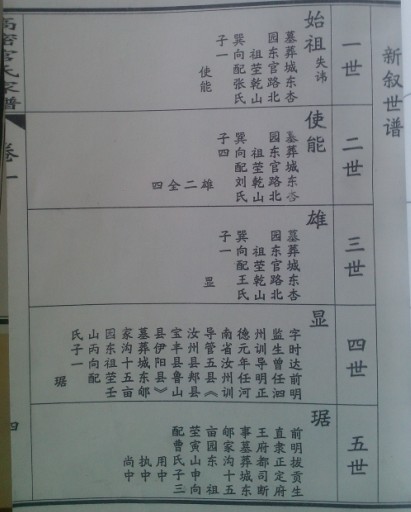 新叙世谱
一世
始祖 失讳
墓葬城东杏
园东官路北
祖茔乾山
巽向配张氏
子一
使能
二世
使能
墓葬城东杏
园东官路北
祖茔乾山
巽向配刘氏
子四
雄二全四
三世
雄
墓葬城东杏
园东官路北
祖茔乾山
巽向配王氏
子一
显
四世
显
字时达前明
监生曾任泗
州训导明正
德元年任河
南省汝州训
导管五县《
汝州县郏县
宝丰县鲁山
县伊阳县》
墓葬城东邮
家沟十五亩
园东祖茔壬
山丙向配
氏子一
琚
五世
琚
前明拔贡生
直隶正定府
王府都司断
事墓葬城东
邮家沟十五
亩园东祖
茔寅山申向
配曹氏子三
用中
执中
尚中
高密官氏家谱
卷一
四